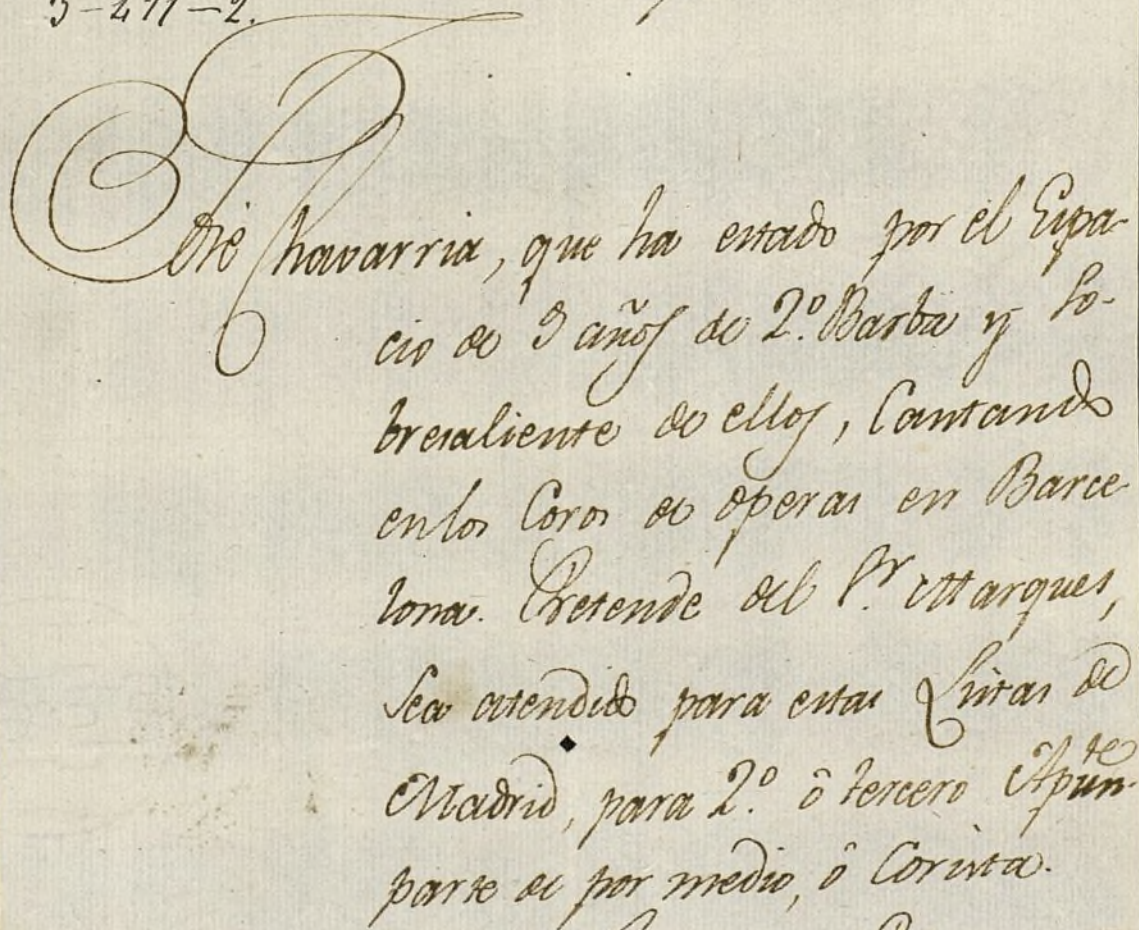 3-471-2.
José Chavarria, que ha estado por el Espa-
cio de 9 años de 2.º Barba y So-
bresaliente de ellos, Cantando
en los Coros de operas en Barce
lona. Pretende del S.r Marques,
Sea atendido para estas Listas de
Madrid, para 2.º ô tercero Apun.te
parte de por medio, ô Corista.